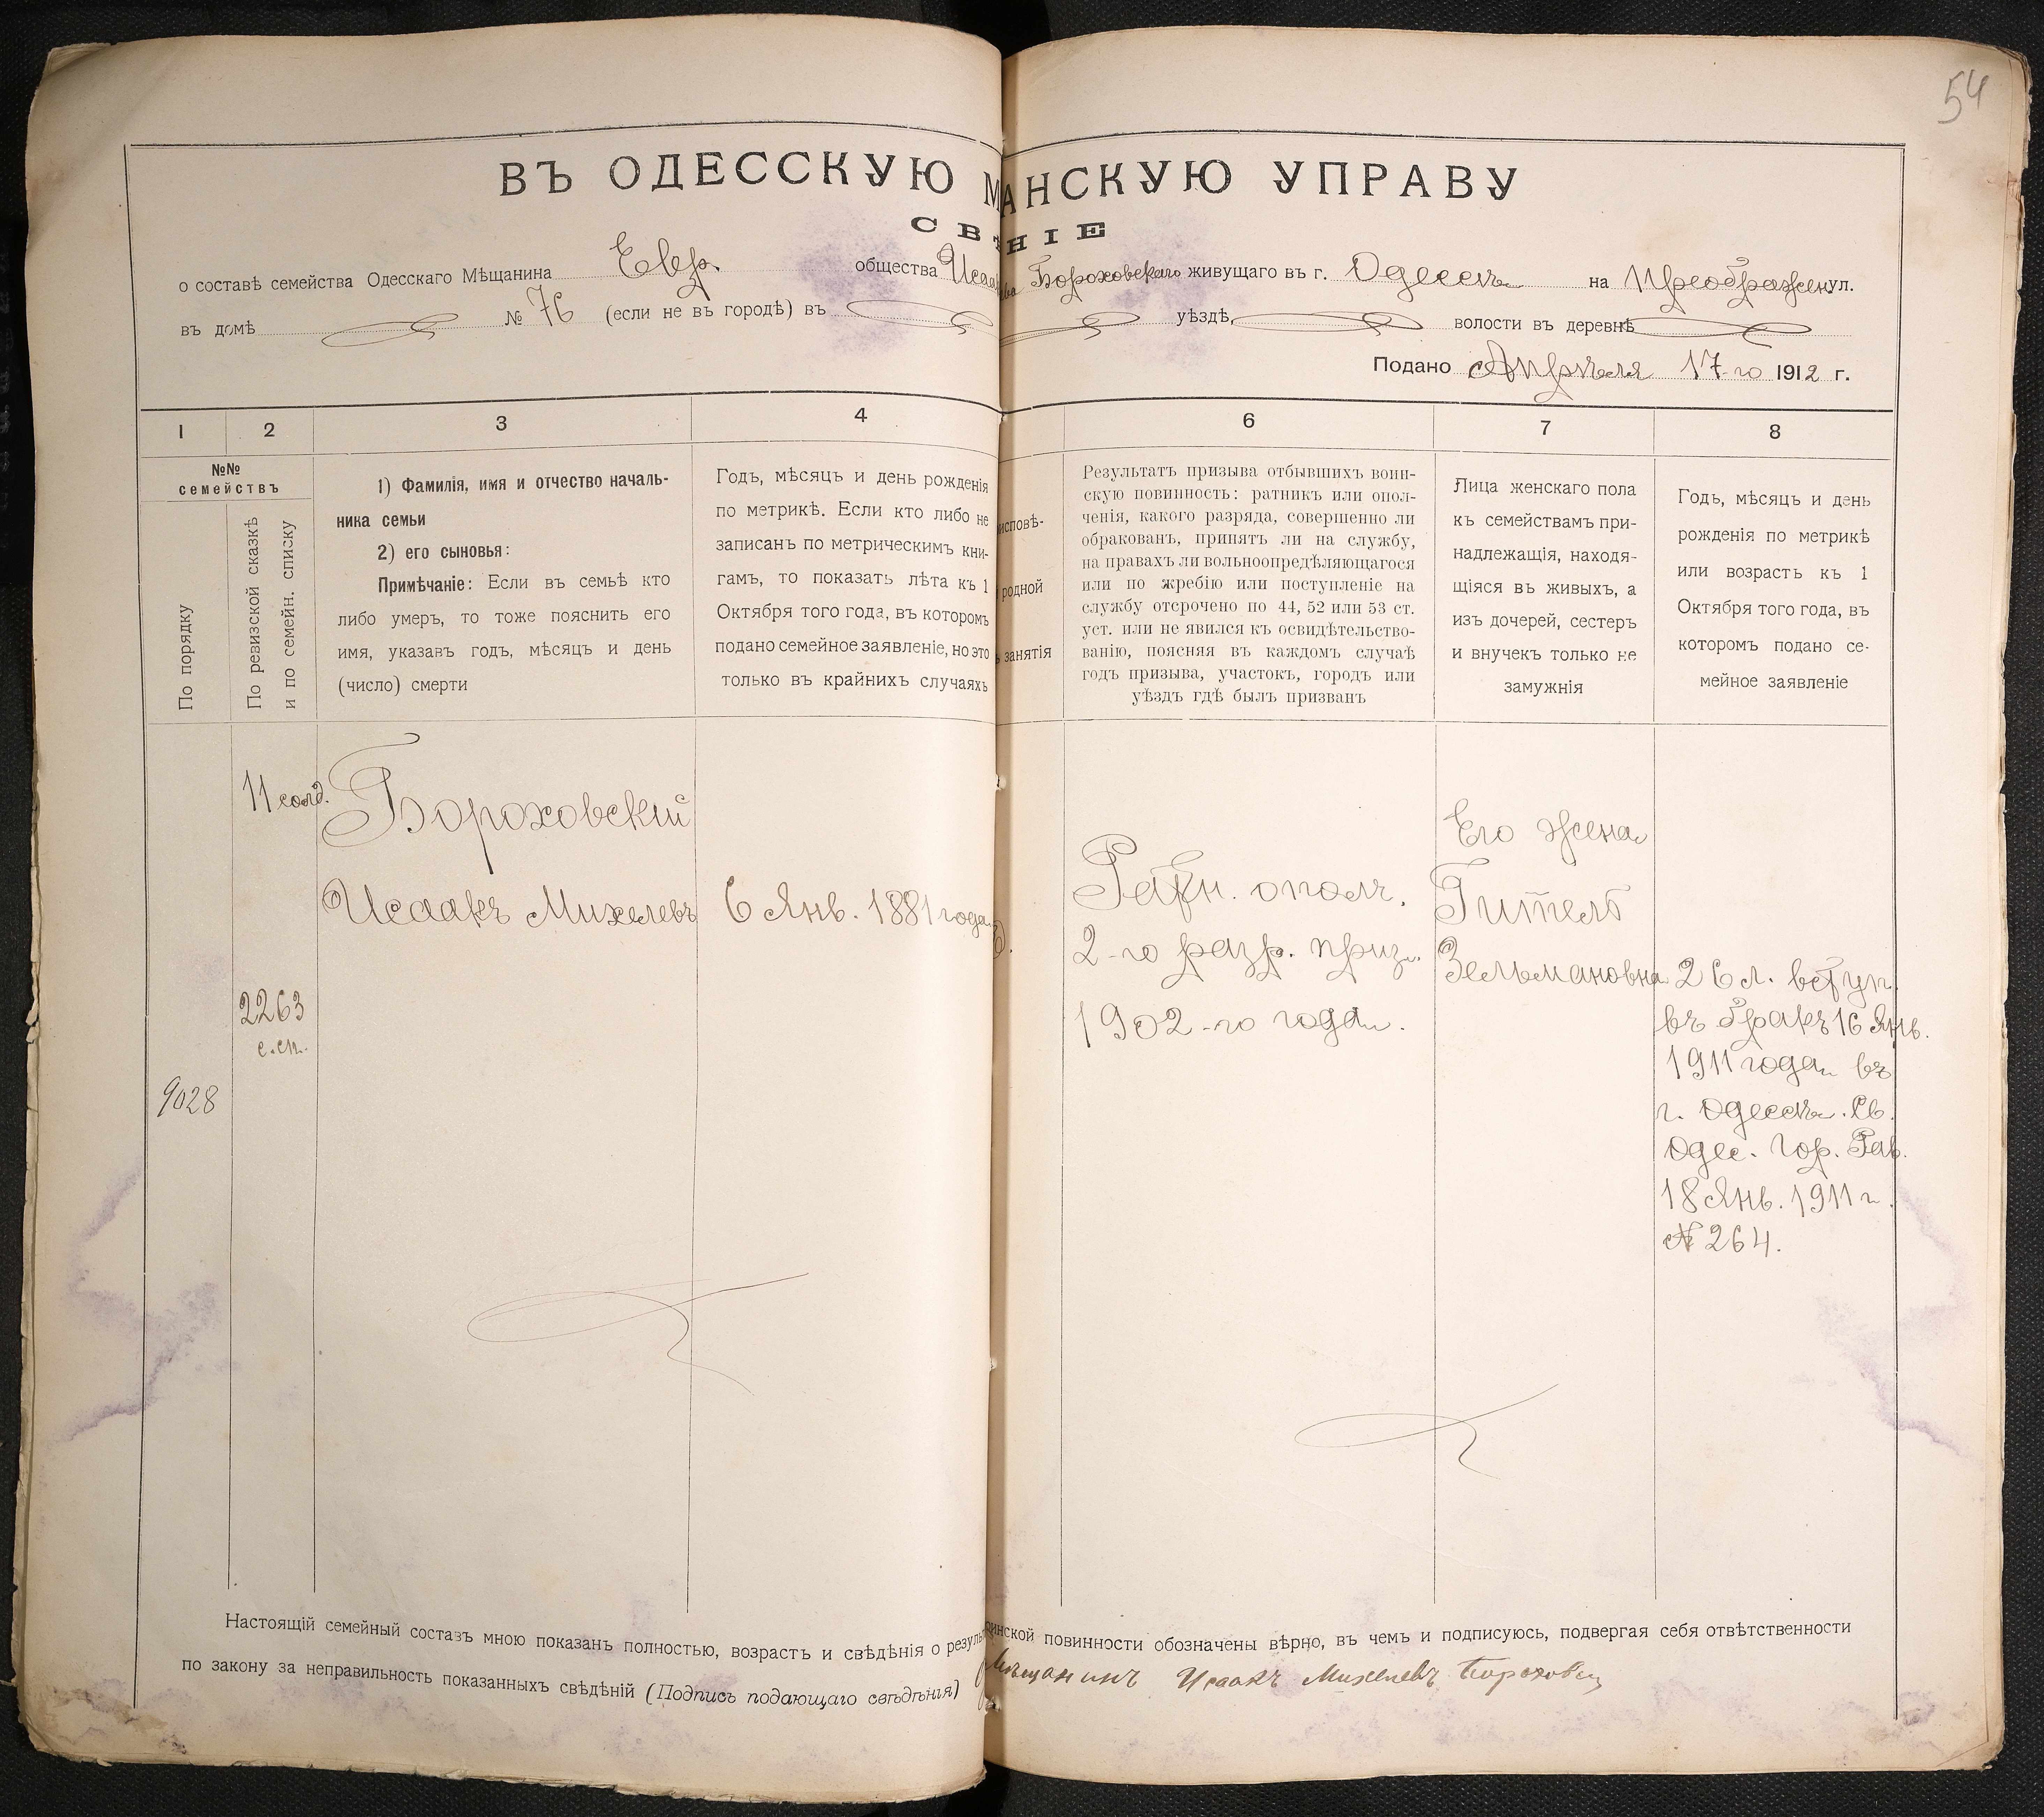 54
ВЪ ОДЕССКУЮ М АНСКУЮ УПРАВУ
СВѢ НІЕ
о составѣ семейства Одесскаго Мѣщанина Евр. общества Исаа Бороховскаго живущаго въ г. Одессѣ на Преображен ул.
въ домѣ № 76 (если не въ городѣ) въ уѣздѣ, волости въ деревнѣ
Подано Апрѣля 17-го 1912 г.
1 2 3 4 6 7 8
№№ семействъ
По порядку
По ревизской сказкѣ
и по семейн. списку
1) Фамилія, имя и отчество началь-
ника семьи
2) его сыновья:
Примѣчаніе: Если въ семьѣ кто
либо умеръ, то тоже пояснить его
имя, указавъ годъ, мѣсяцъ и день
(число) смерти
Годъ, мѣсяцъ и день рожденія
по метрикѣ. Если кто либо не
записанъ по метрическимъ кни-
гамъ, то показать лѣта къ 1
Октября того года, въ которомъ
подано семейное заявленіе, но это
только въ крайнихъ случаяхъ
исповѣ-
родной
занятія
Результатъ призыва отбывшихъ воин-
скую повинность: ратникъ или опол-
ченія, какого разряда, совершенно ли
обракованъ, принятъ ли на службу,
на правахъ ли вольноопредѣляющагося
или по жребію или поступленіе на
службу отсрочено по 44, 52 или 53 ст.
уст. или не явился къ освидѣтельство-
ванію, поясняя въ каждомъ случаѣ
годъ призыва, участокъ, городъ или
уѣздъ гдѣ былъ призванъ
Лица женскаго пола
къ семействамъ при-
надлежащія, находя-
щіяся въ живыхъ, а
изъ дочерей, сестеръ
и внучекъ только не
замужнія
Годъ, мѣсяцъ и день
рожденія по метрикѣ
или возрастъ къ 1
Октября того года, въ
которомъ подано се-
мейное заявленіе
11 солд.
2263
с.сп.
9028
Бороховскій
Исаакъ Михелевъ
6 Янв. 1881 года
Ратн. ополч.
2-го разр. приз.
1902-го года.
Его жена
Гитель
Зельмановна
26 л. вступ.
въ бракъ 16 Янв.
1911 года въ
г. Одессѣ. Св.
Одес. Гор. Рав.
18 Янв. 1911 г.
№ 264.
Настоящій семейный составъ мною показанъ полностью, возрастъ и свѣдѣнія о резуль инской повинности обозначены вѣрно, въ чемъ и подписуюсь, подвергая себя отвѣтственности
по закону за неправильность показанныхъ свѣдѣній (Подпись подающаго свѣдѣнія) Мѣщанинъ Исаакъ Михелевъ Бороховскій